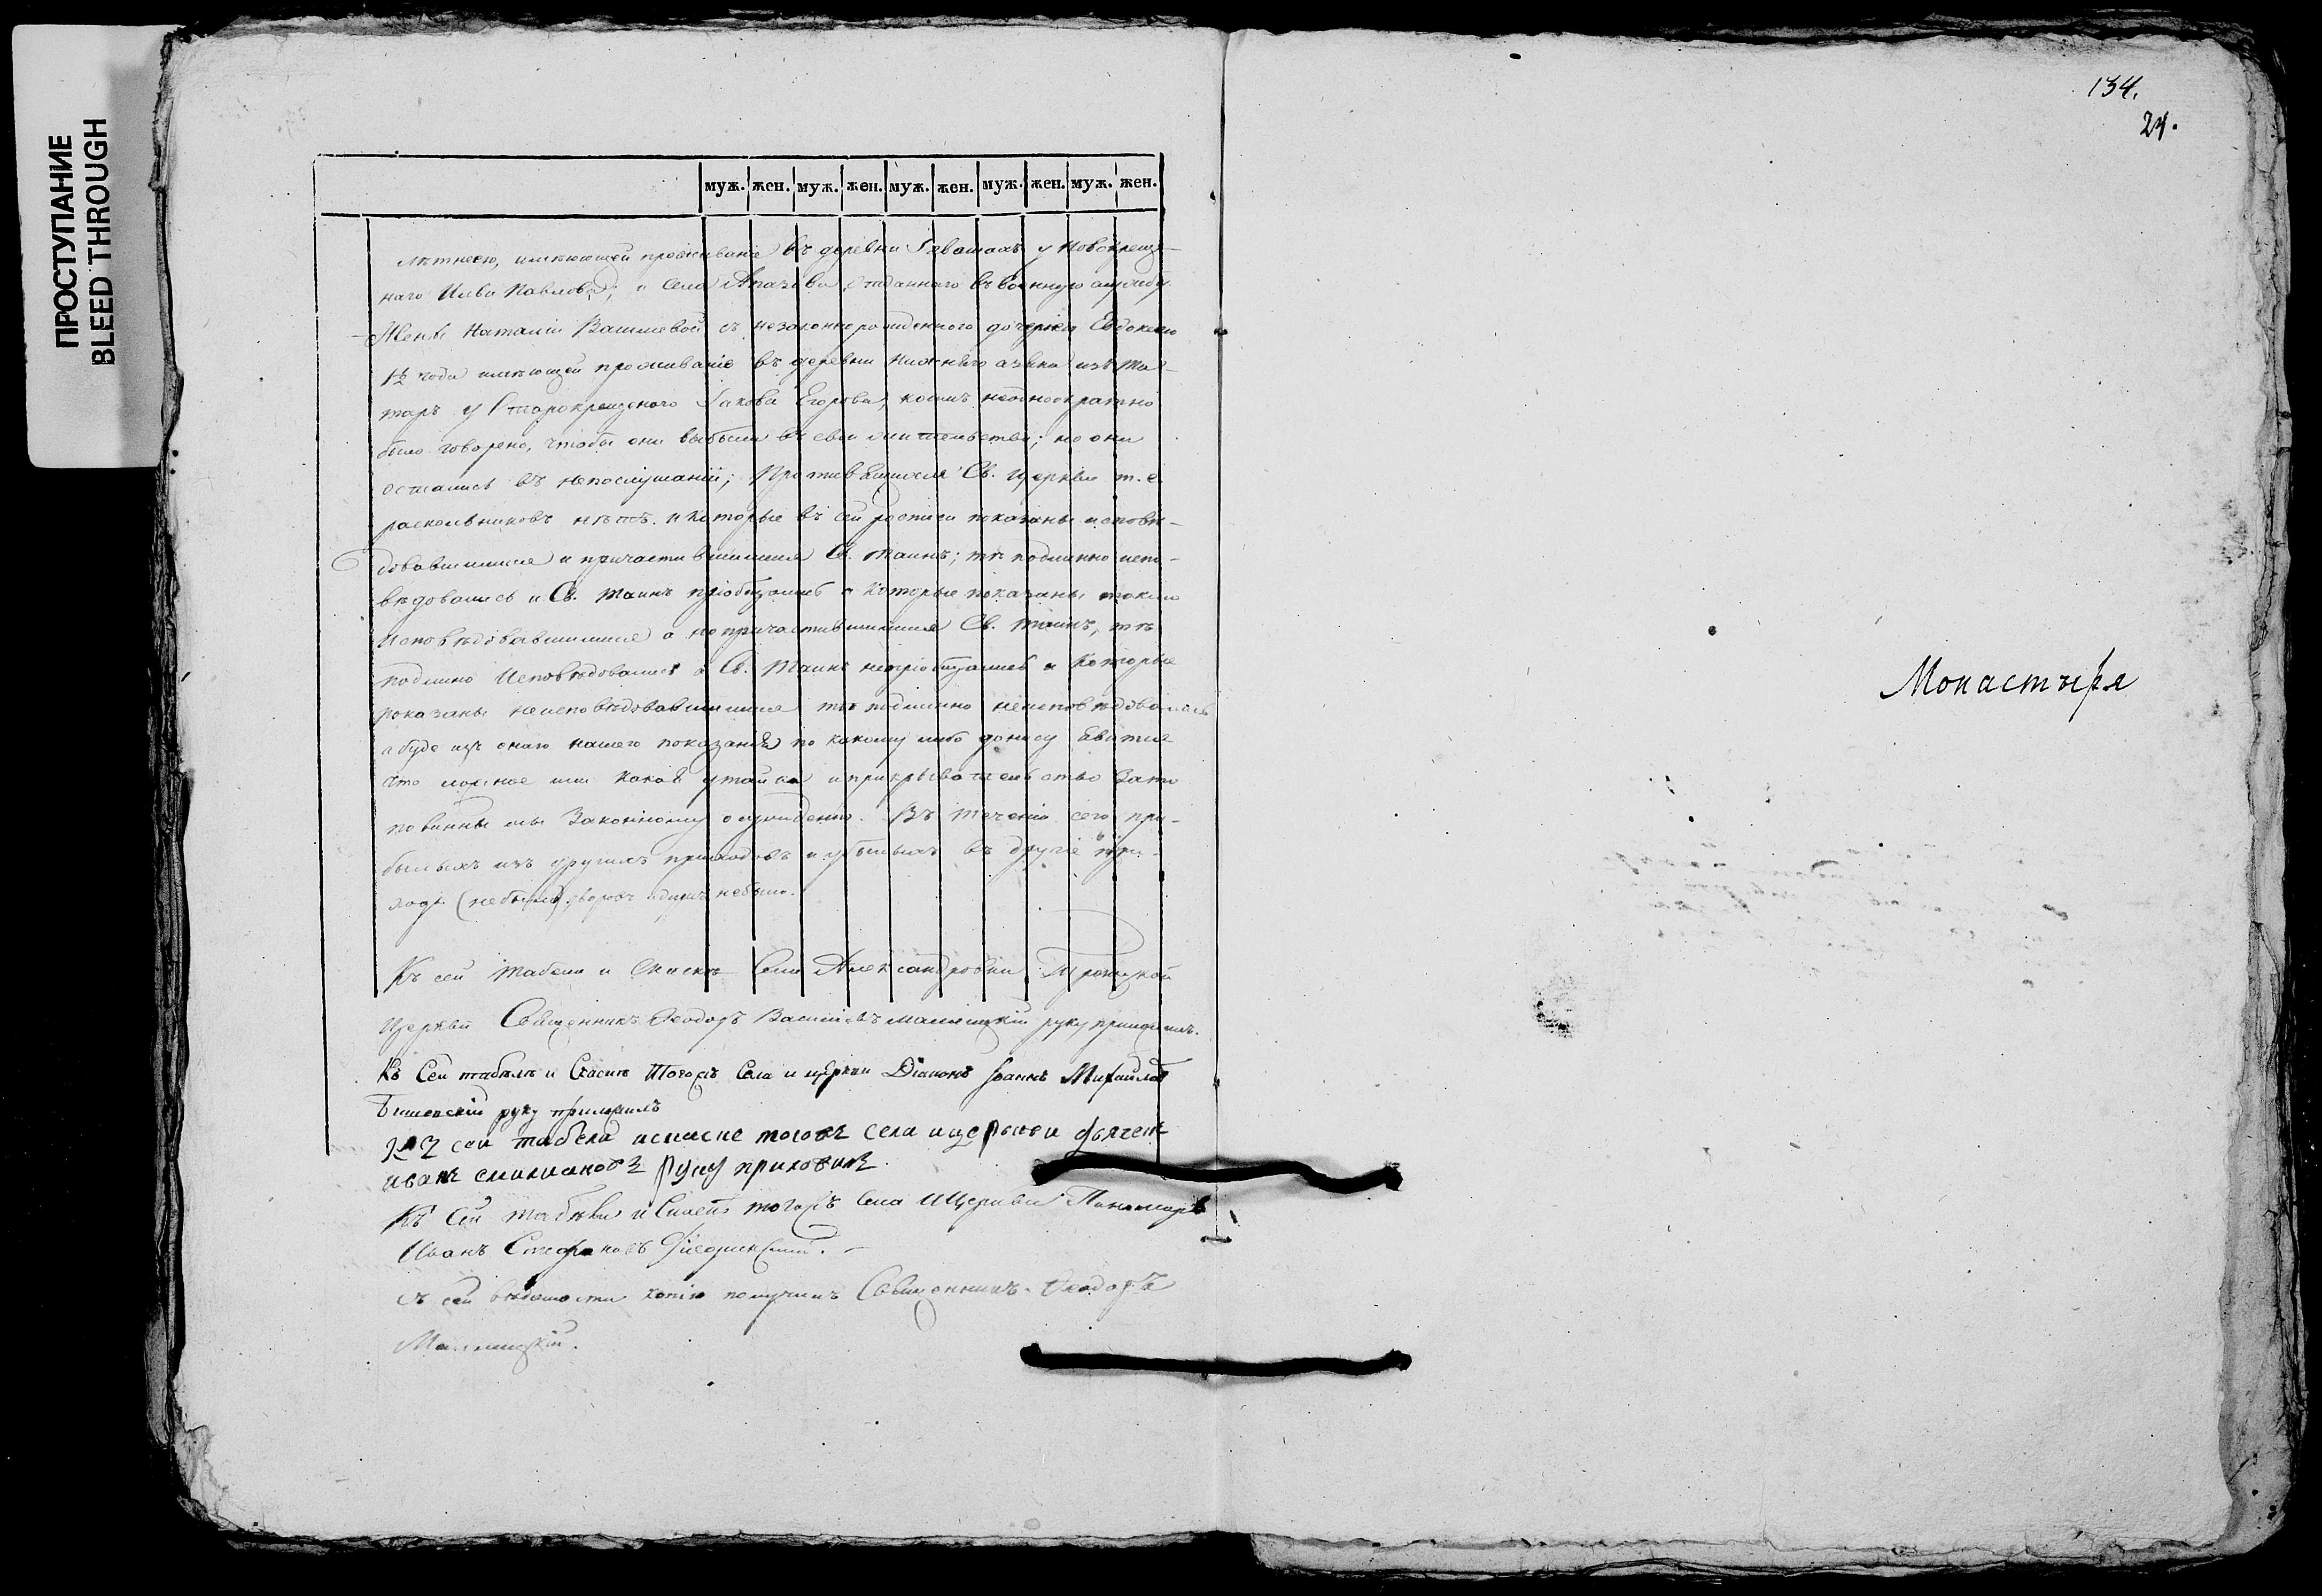 ПРОСТУПАНИЕ
BLEED THROUGH
134.
24.
муж. жен. муж. жен. муж. жен. муж. жен. муж. жен.
лѣтнею, имѣющей проживаніе въ деревни у Новокреще-
наго Павлова; и села отданнаго въ военную службу
Жены Наталіи Васильевой съ незаконнорожденного дочерію Евдокіею
1/2 года имѣющей проживаніе въ деревни Нижняго изъ та-
таръ у Старокрещенаго Іакова Егорова, коимъ неоднократно
было говорено, чтобы они выбыли въ свои жительства; но они
остались въ непослушаніи; Противящихся Св. Церкви т. е.
раскольниковъ нѣтъ. и которые въ сей росписи показаны исповѣ-
довавшимися и причастившимися Св. Таинъ; тѣ подлинно испо-
вѣдовались и Св. Таинъ пріобщались а которые показаны токмо
исповѣдовавшимися а не причастившимися Св. Таинъ, тѣ
подлинно исповѣдовались а Св. Таинъ непріобщались а которые
показаны неисповѣдовавшимися тѣ подлинно неисповѣдовались
а буде изъ онаго нашего показанія по какому либо доносу явится
что ложное или какая утайка и прикрывательство зато
повинны мы Законному осужденію. Въ теченіи сего при-
былыхъ изъ другихъ приходовъ и убылыхъ въ другіе при-
ходы (небыло) дворовъ небыло.
Къ сей табели и Скаскѣ Села Александровки Троицкой
Церкви Священникъ Ѳеодоръ Васильевъ Малницкій руку приложилъ.
Къ Сей табелѣ и Скаскѣ Тогожъ Села и церкви Діаконъ Іоаннъ Михайловъ
руку приложилъ
къ сей табели искаске тогожъ села ицеркви дьячекъ
иванъ руку приложилъ
Къ Сей табѣли и Скаскѣ тогожъ Села и Церкви Пономарь
Иванъ Стефановъ
съ сей вѣдомости копію получилъ Священникъ Ѳеодоръ
Малницкій.
Монастыря